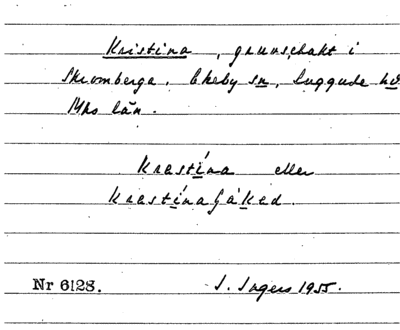 Kristina, gruvschakt i
Skromberga, Ekeby sn, Luggude hd
Mhs län.
Krastína eller
Krastínahåked.
Nr 6128. I. Ingers 1955.